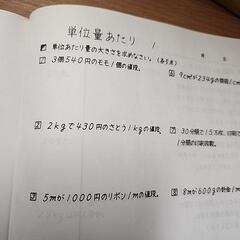 単位量あたり 1
単位あたり量の大きさを求めなさい。(各5点)
1 3個540円のモモ1個の値段。
2 2kgで430円のさとう1kgの値段。
3 5mが1000円のリボン1mの値段。
6 9cm²が234gの
7 30分間で15万枚、印刷
1分間の印刷枚数。
8 8mが600gの針金1m